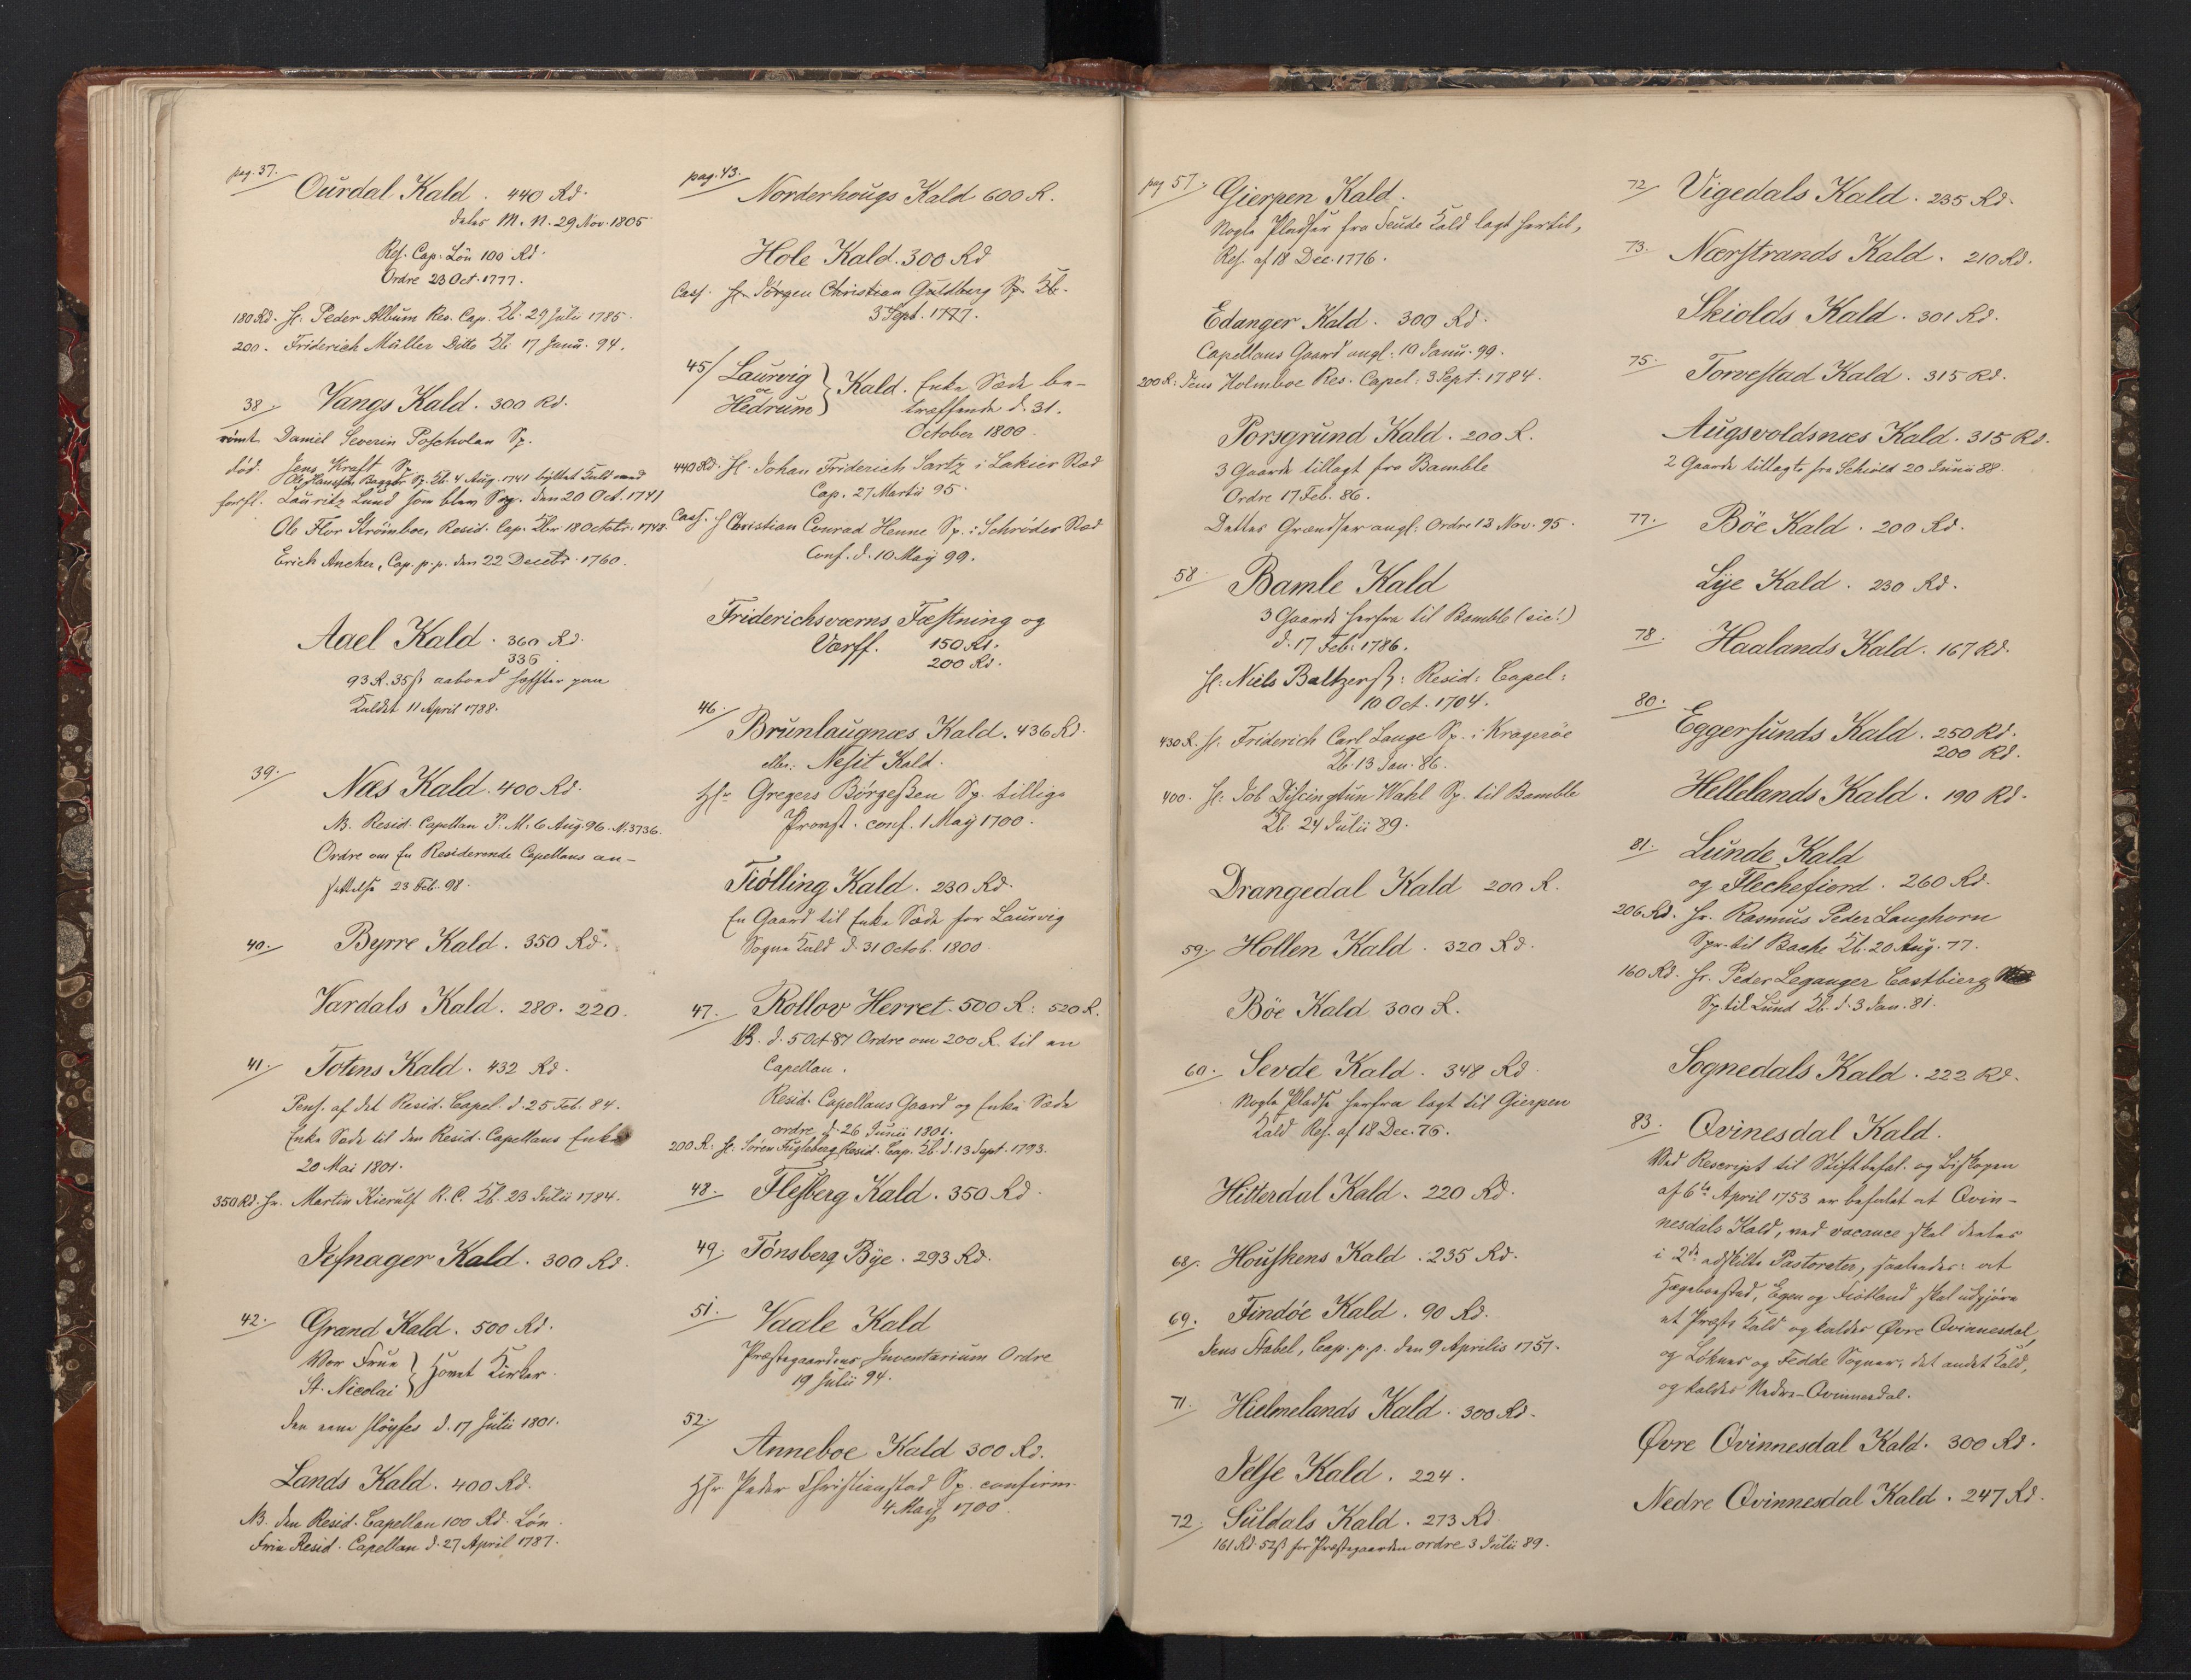 pag. 37.
Ourdal Kald . 440 Rd.
deles M. N. 29 Nov. 1805
Res. Cap. Lön 100 Rd.
Ordre 23 Oct. 1777.
180 Rd. H: Peder Album Res. Cap. Kb. 29 Julii 1785.
200. Friderich Müller Ditto Kb. 17 Janu. 94.
38 Vangs Kald . 300 Rd.
römt. Daniel Severin Poscholan Sp.
död. Jens Kraft Sp.
Ole Hansson Bagger Sp. Kb. 4 Aug. 1741 byttet Kald med
forfl. Lauritz Lund som blev Sog. den 20 Oct. 1741
Ole Flor Strömboe, Resid. Cap. Kbr 18 Octobr. 1748.
Erich Ancher, Cap. p.p. den 22 Decebr. 1760.
Aael Kald . 360 Rd.
336
93 R. 35 ß aabod hefter paa
Kaldet 11 April 1788.
39. Næs Kald . 400 Rd.
NB. Resid. Capellan P: M: 6 Aug. 96. N. 3736.
Ordre om En Residerende Capellans an-
settelse 23 Feb. 98.
40. Byrre Kald . 350 Rd.
Vardals Kald . 280 . 220.
41. Totens Kald . 432 Rd.
Pens. af det Resid. Capel. d. 25 Feb. 84.
Enke Sæde til den Resid. Capellans Enke
20 Mai 1801.
350 Rd. Hr. Martin Kierulf R. C. Kb. 23 Julii 1784.
Jefnager Kald . 300 Rd.
42. Grand Kald . 500 Rd.
Vor Frue
St. Nicolai } Hovet Kirker.
den eene slöyfes d. 17 Julii 1801.
Lands Kald . 400 Rd.
NB. den Resid. Capellan 100 Rd. Lön.
Resid. Capellan d. 27 April 1787.
pag. 43.
Norderhougs Kald 600 R.
Hole Kald . 300 Rd
Cass. Hr. Jörgen Christian Guldberg Sp. Kb.
3 Sept. 1777.
45/ Laurvig
oc
Hedrum } Kald. Enke Sæde be-
træffende d. 31.
October 1800.
440 Rd. H. Johan Friderich Sartz i Lakier Sted
Cap. 27 Martii 95.
Cass. H Christian Conrad Henne Sp. i Schröder Sted
Conf. d. 10 Maÿ 99.
Friderichsværns Fæstning og
Værff. 150 Rd.
200 Rd.
46. Brunlaugnæs Kald . 436 Rd.
eller: Nesit Kald.
Hr. Gregers Börgeßen Sp. tillige
Provst . conf. 1 Maÿ 1700.
Tiölling Kald . 230 Rd.
En Gaard til Enke Sæde for Laurvig
Sogne Kald d. 31 Octob. 1800.
47. Rollov Herret . 500 R: 520 R.
NB. d. 5 Oct 87 Ordre om 200 R. til en
Capellan.
Resid. Capellans Gaard og Enke Sæde
ordre d. 26 Junii 1801.
200 R. H. Sören Fugleberg Resid. Cap. Kb. d. 13 Sept. 1793.
48. Flesberg Kald . 350 Rd.
49. Tönsberg Bÿe . 293 Rd.
51. Vaale Kald
Præstegaardens Inventarium Ordre
19 Julii 94.
52. Anneboe Kald 300 Rd.
Hr. Peder Christianstad Sp. confirm.
4 Maÿ 1700
pag 57. Gierpen Kald.
Nogle Pladser fra Seude Kald lagt hertil,
Res. af 18 Dec. 1776.
Edanger Kald . 300 Rd.
Capellans Gaard angl. 10 Janu. 99.
200 R. Jens Holmboe Res. Capel. 3 Sept. 1784.
Porsgrund Kald . 200 R.
3 Gaarde tillagt fra Bamble
Ordre 17 Feb. 86.
Dettes Grændser angl: Ordre 13 Nov. 95.
58 Bamle Kald
3 Gaarde herfra til Bamble (sic!)
d. 17 Feb. 1786.
H: Niels Baltzerß: Resid: Capel:
10 Oct. 1704.
430 R. H. Friderich Carl Lange Sp. i Krageröe
Kb. 13 Jan. 86.
400. H: Job Discingtun Wahl Sp. til Bamble
Kb. 24 Julii 89.
Drangedal Kald 200 R.
59. Hollen Kald . 320 Rd.
Böe Kald 300 R.
60. Sevde Kald . 348 Rd.
Nogle Pladse herfra lagt til Gierpen
Kald Res. af 18 Dec. 76.
Hitterdal Kald . 220 Rd.
68. Houskens Kald . 235 Rd.
69. Findöe Kald . 90 Rd.
Jens Stabel, Cap. p.p. den 9 Aprilis 1751.
71. Hielmelands Kald . 300 Rd.
Jelse Kald . 224.
72. Suldals Kald . 273 Rd
161 Rd. 52 ß for Præstegaarden ordre 3 Julii 89.
72 Vigedals Kald . 235 Rd.
73. Nærstrands Kald . 210 Rd.
Skiolds Kald . 301 Rd.
75. Torvestad Kald . 315 Rd.
Augsvoldsnæs Kald . 315 Rd.
2 Gaarde tillagte fra Schiold 20 Junii 88.
77. Böe Kald . 200 Rd.
Lÿe Kald . 230 Rd.
78. Haalands Kald . 167 Rd.
80. Eggersunds Kald . 250 Rd.
200 Rd.
Hellelands Kald . 190 Rd.
81. Lunde Kald
og Flechefiord . 260 Rd.
206 Rd. Hr. Rasmus Peder Langhorn
Spr. til Bache Kb. 20 Aug. 77.
160 Rd. Hr. Peder Leganger Castbierg
Sp. til Lund Kb. d. 3 Jan. 81.
Sognedals Kald . 222 Rd.
83. Qvinesdal Kald.
Ved Rescript til Stiftbefal. og Biskopen
af 6te April 1753 er befalet at Qvin-
nesdals Kald, ved vacance skal deeles
i 2de adskilte Pastorater, saaledes: at
Hægebostad, Egen og Fiotland skal udgjöre
et Præste Kald og kaldes Øvre Qvinnesdal,
og Löknes og Fedde Sogner, det andet Kald,
og kaldes Nedre-Qvinnesdal.
Øvre Qvinnesdal Kald . 300 Rd.
Nedre Qvinnesdal Kald . 247 Rd.